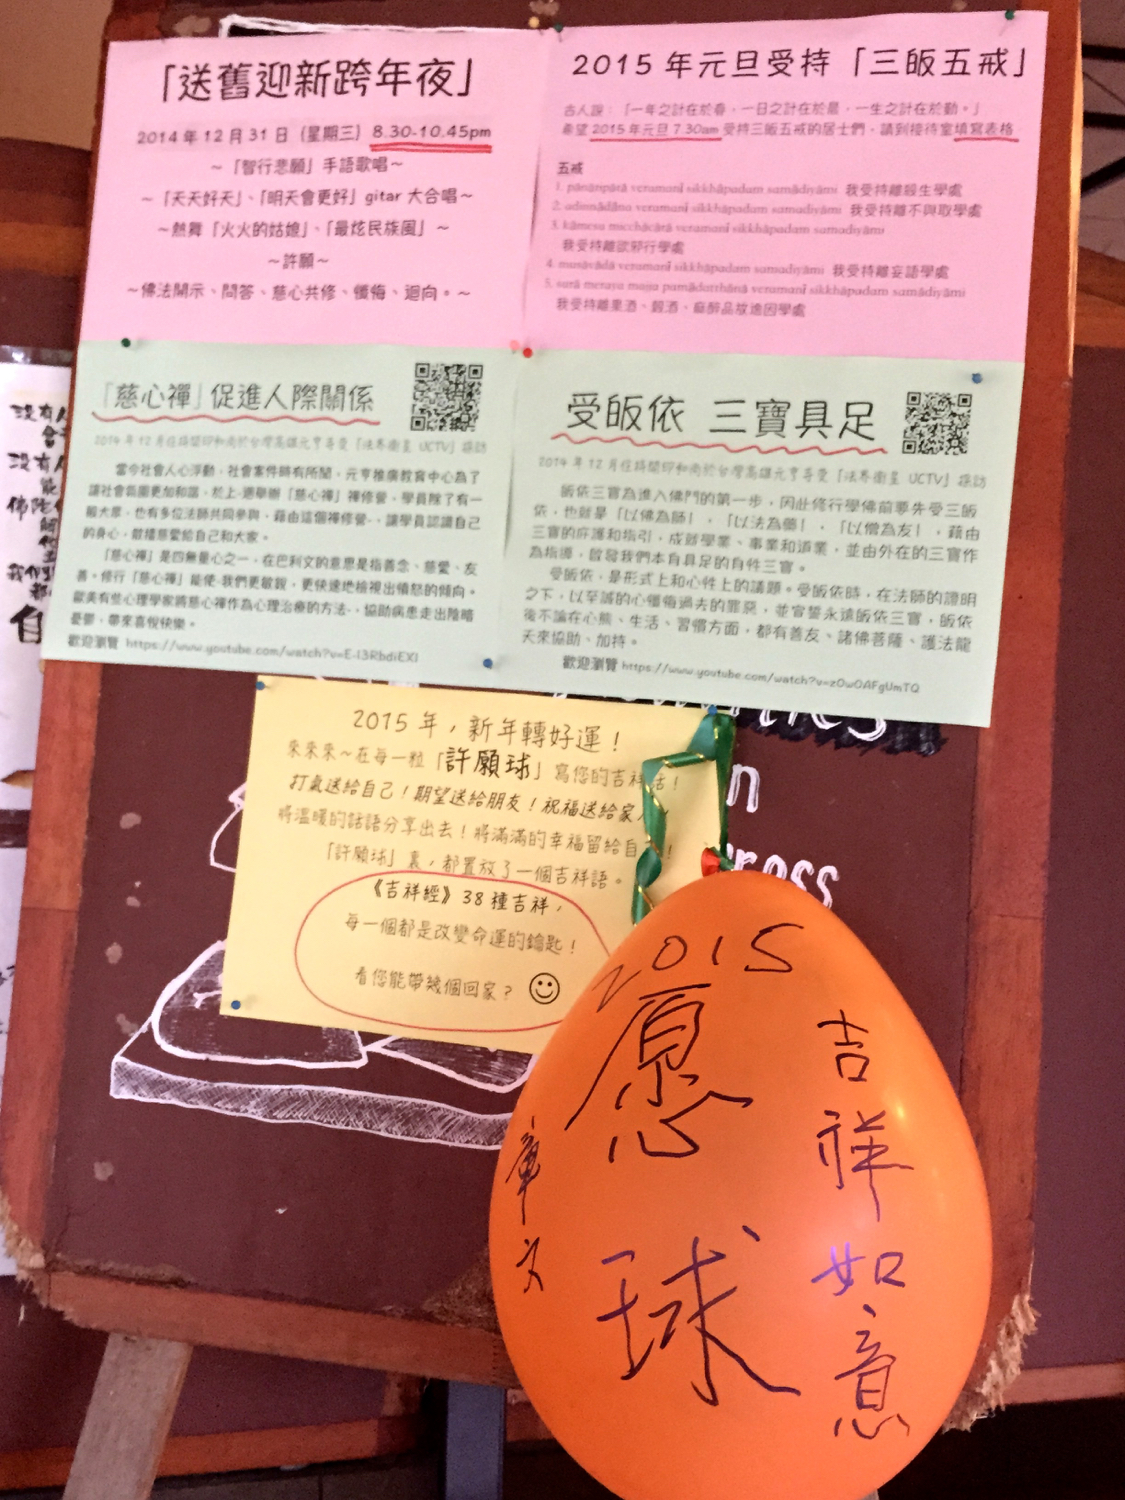 「送舊迎新跨年夜」
2014 年 12 月 31 日 (星期三) 8.30-10.45pm
～「智行悲願」手語歌唱～
～「天天好天」、「明天會更好」gitar 大合唱～
～熱舞「火火的姑娘」、「最炫民族風」～
～許願～
～佛法開示、問答、慈心共修、懺悔、迴向。～
2015 年元旦受持「三皈五戒」
古人說：「一年之計在於春，一日之計在於晨，一生之計在於勤。」
希望 2015 年元旦 7.30am 受持三皈五戒的居士們，請到接待室填寫表格
五戒
1. pāṇātipātā veramaṇī sikkhāpadaṃ samādiyāmi 我受持離殺生學處
2. adinnādānā veramaṇī sikkhāpadaṃ samādiyāmi 我受持離不與取學處
3. kāmesu micchācārā veramaṇī sikkhāpadaṃ samādiyāmi
我受持離欲邪行學處
4. musāvādā veramaṇī sikkhāpadaṃ samādiyāmi 我受持離妄語學處
5. surā meraya majja pamādaṭṭhānā veramaṇī sikkhāpadaṃ samādiyāmi
我受持離果酒、穀酒、麻醉品放逸因學處
「慈心禪」促進人際關係
2014 年 12 月住持開印和尚於台灣高雄元亨寺受「法界衛星 UCTV」採訪
當今社會人心浮動，社會案件時有所聞，元亨推廣教育中心為了
讓社會氛圍更加和諧，於上週舉辦「慈心禪」禪修營，學員除了有一
般大眾，也有多位法師共同參與，藉由這個禪修營，讓學員認識自己
的身心，散播慈愛給自己和大家。
「慈心禪」是四無量心之一，在巴利文的意思是指善念、慈愛、友
善。修行「慈心禪」能使我們更敏銳，更快速地檢視出憤怒的傾向。
歐美有些心理學家將慈心禪作為心理治療的方法，協助病患走出陰暗
憂鬱，帶來喜悅快樂。
歡迎瀏覽 https://www.youtube.com/watch?v=E-I3RbdiEXI
受皈依 三寶具足
2014 年 12 月住持開印和尚於台灣高雄元亨寺受「法界衛星 UCTV」採訪
皈依三寶為進入佛門的第一步，因此修行學佛前要先受三皈
依，也就是「以佛為師」，「以法為藥」，「以僧為友」，藉由
三寶的庇護和指引，成就學業、事業和道業，並由外在的三寶作
為指導，啟發我們本自具足的自性三寶。
受皈依，是形式上和心性上的議題。受皈依時，在法師的證明
之下，以至誠的心懺悔過去的罪惡，並宣誓永遠皈依三寶，皈依
後不論在心態、生活、習慣方面，都有善友、諸佛菩薩、護法龍
天來協助、加持。
歡迎瀏覽 https://www.youtube.com/watch?v=zOwOAFgUmTQ
2015 年，新年轉好運！
來來來～在每一粒「許願球」寫您的吉祥話！
打氣送給自己！期望送給朋友！祝福送給家
將溫暖的話語分享出去！將滿滿的幸福留給自！
「許願球」裏，都置放了一個吉祥語。
《吉祥經》38 種吉祥，
每一個都是改變命運的鑰匙！
看您能帶幾個回家？
2015
愿
球
吉祥如意
沒有人
會
沒有人
能
佛陀
我們
都
自